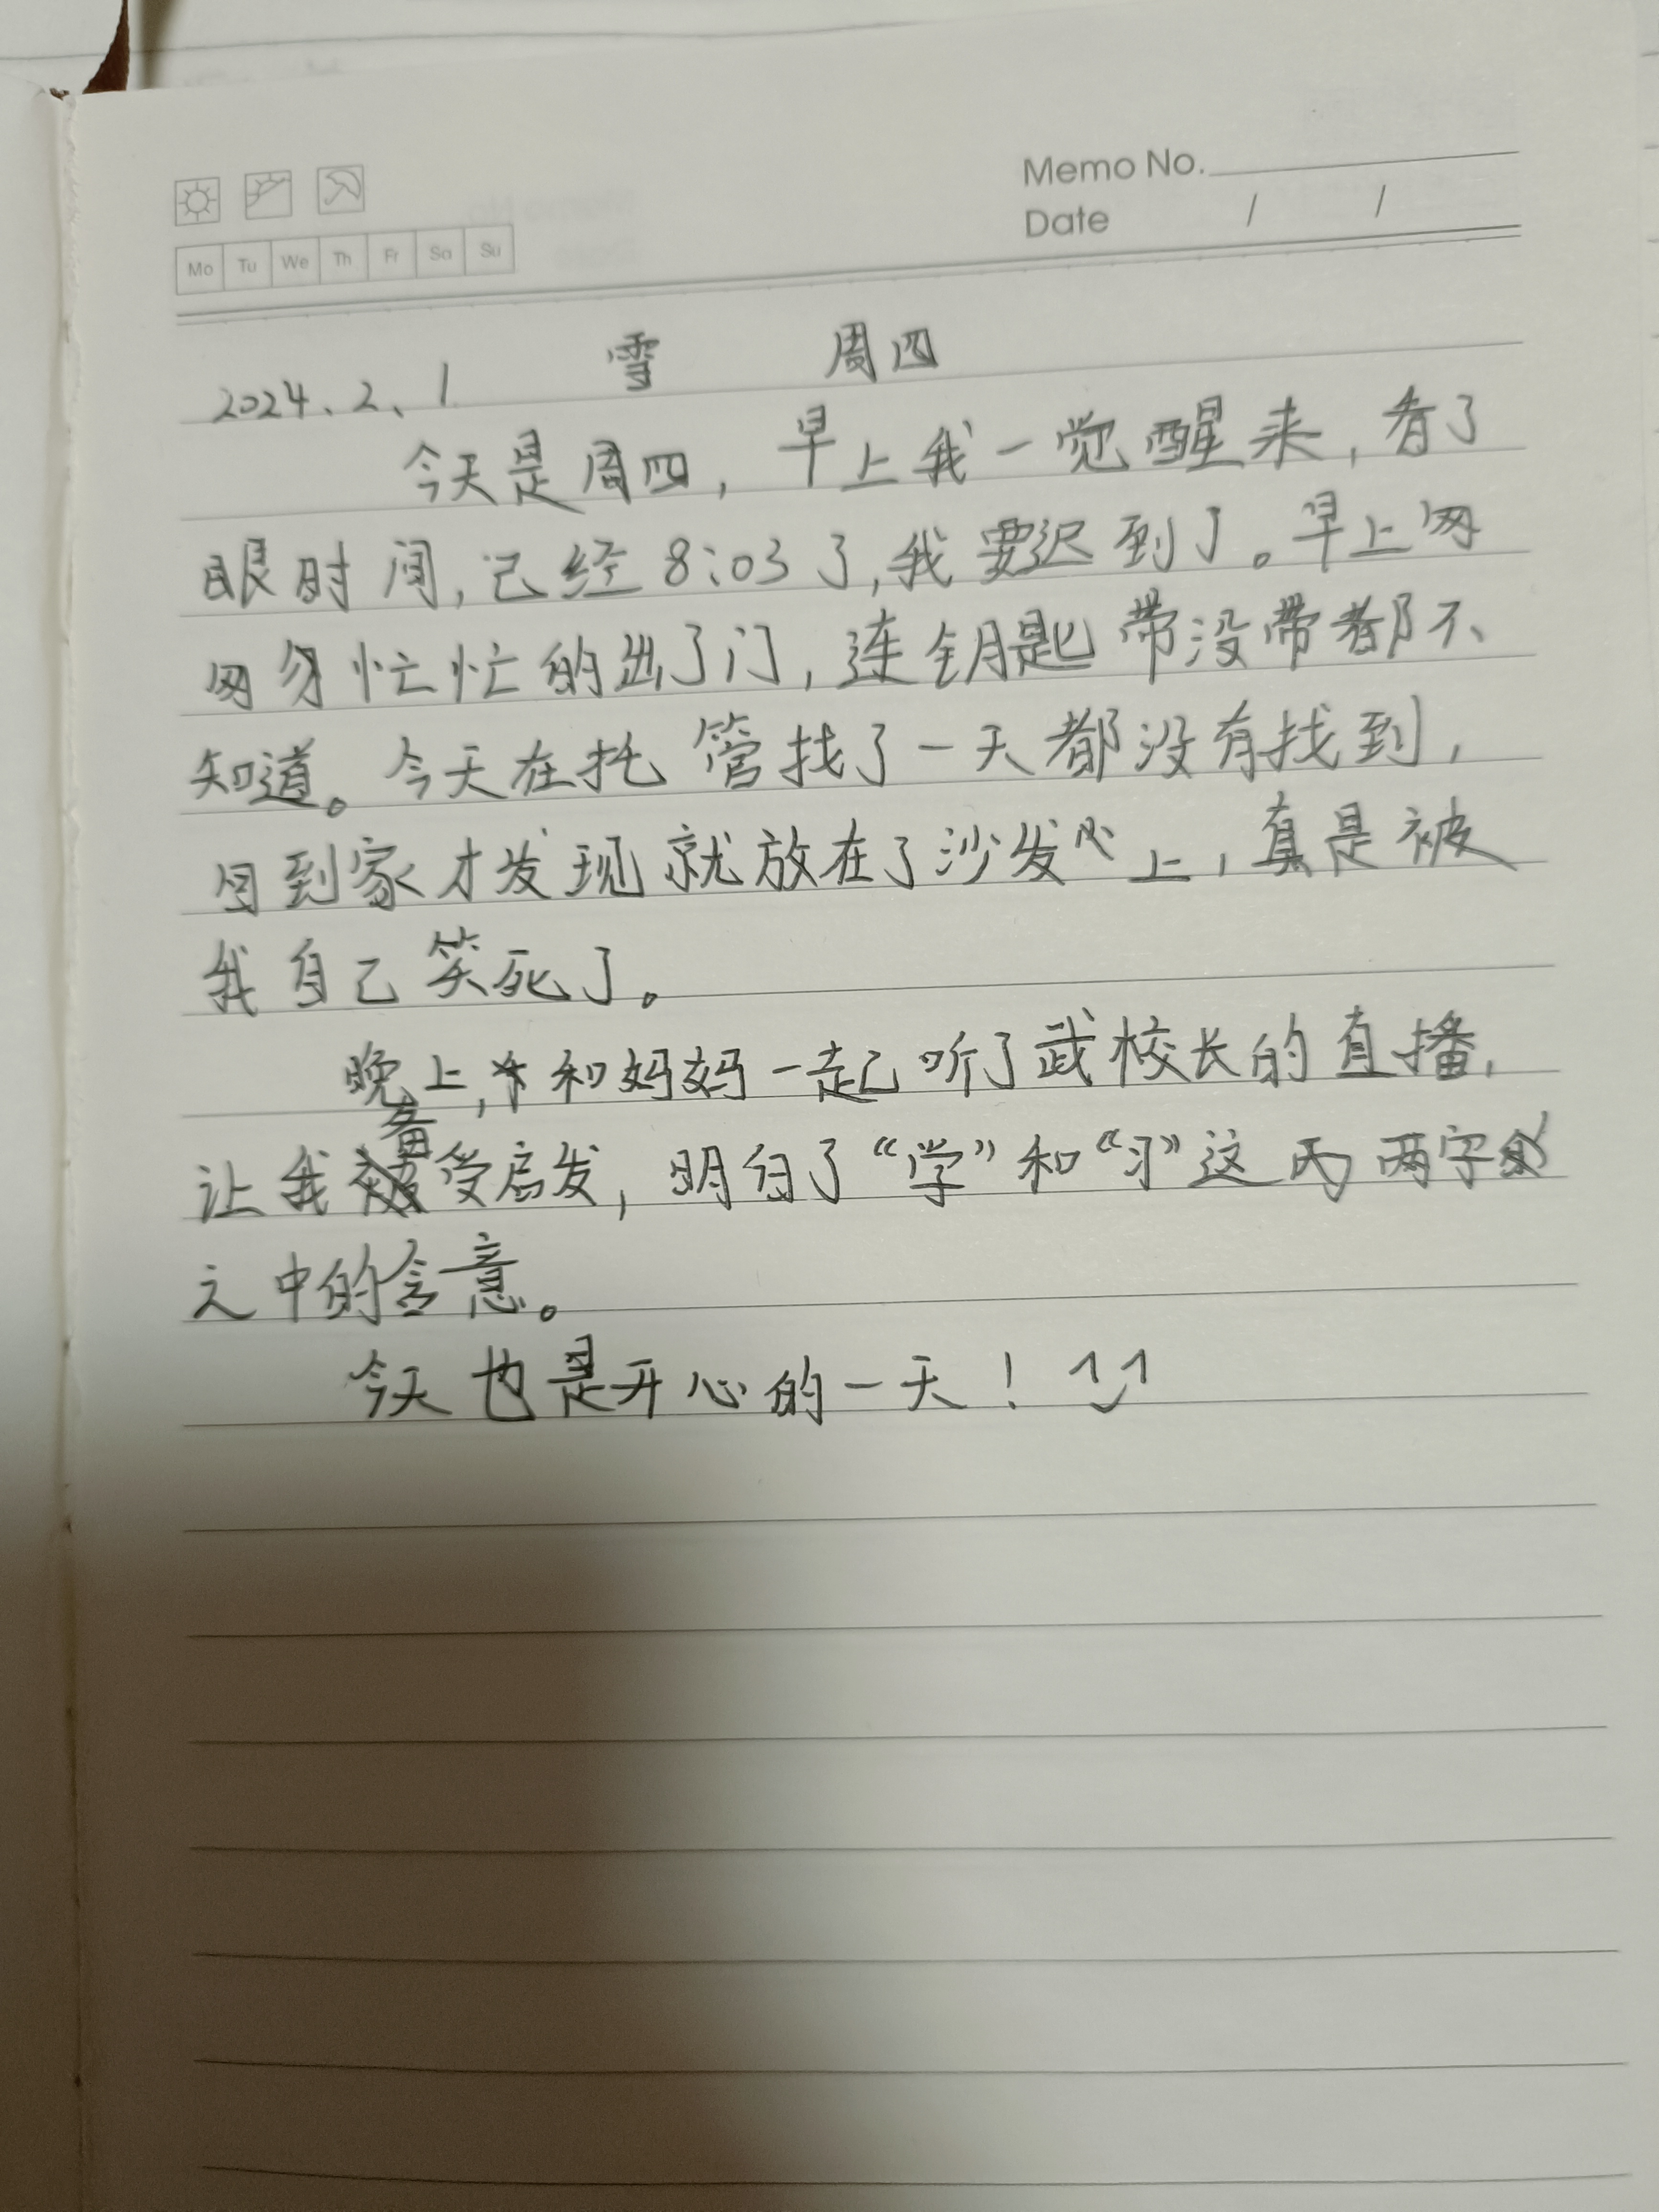 Memo No.
Date / /
Mo Tu We Th Fr Sa Su
2024、2、1 雪 周四
今天是周四，早上我一觉醒来，看了
眼时间，已经8:03了，我要迟到了。早上匆
匆匆忙忙的出了门，连钥匙带没带都不
知道。今天在托管找了一天都没有找到，
回到家才发现就放在了沙发上，真是被
我自己笑死了。
晚上，和妈妈一起听了武校长的直播，
让我备受启发，明白了“学”和“习”这两字
之中的含意。
今天也是开心的一天！